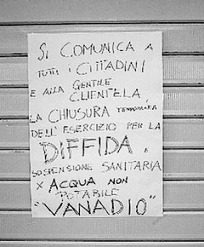 SI COMUNICA A
TUTTI I CITTADINI
E ALLA GENTILE
CLIENTELA
LA CHIUSURA TEMPORANEA
DELL'ESERCIZIO PER LA
DIFFIDA E
SOSPENSIONE SANITARIA
X ACQUA NON
POTABILE
"VANADIO"